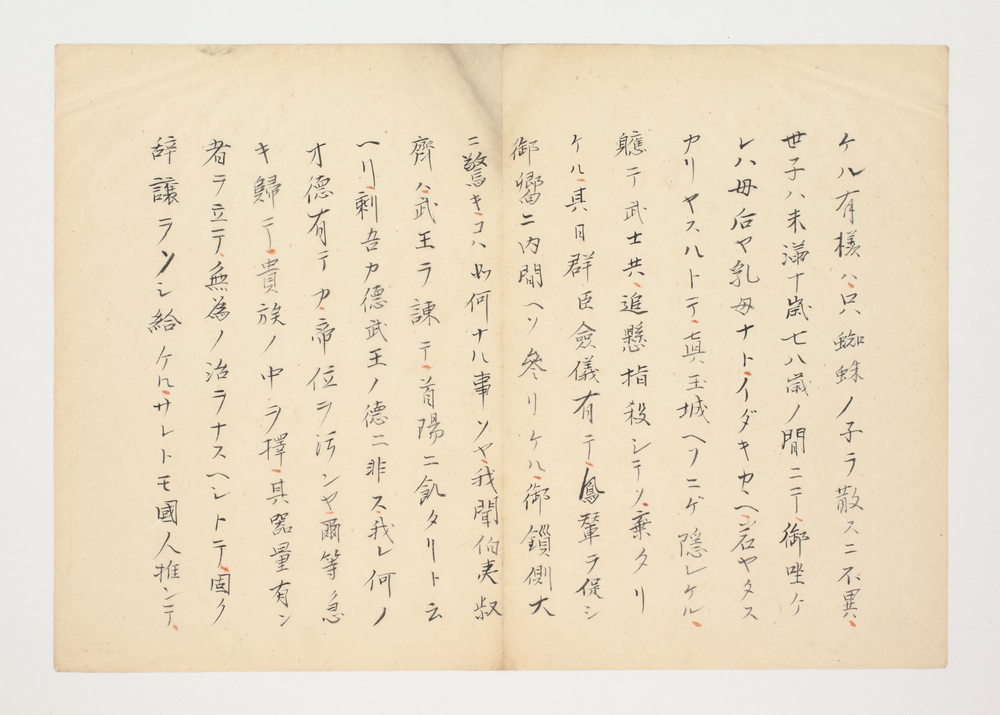 ケル有樣ハ、只蜘蛛ノ子ヲ散スニ不異、
世子ハ未滿十歳七八歳ノ間ニテ、御坐ケ
レハ母后ヤ乳母ナト、イダキカヽヘ、若ヤタス
カリヤスルトテ、真玉城ヘソニゲ隱レケル、
軈テ武士共、追懸指殺シテソ、棄タリ
ケル、其日群臣僉儀有テ、鳳輦ヲ促シ
御嚮ニ内間ヘソ參リケル、御鎖側大
ニ驚キ、コハ如何ナル事ソヤ、我聞伯夷叔
齊ハ、武王ヲ諫テ、首陽ニ飢タリト云
ヘリ、剰吾カ德武王ノ德ニ非ス、我レ何ノ
才德有テカ、帝位ヲ汚ンヤ、爾等急
キ歸テ、貴族ノ中ヲ擇、其器量有ン
者ヲ立テ、無為ノ治ヲナスヘシトテ、固ク
辞讓ヲソシ給ケル、サレトモ國人推ンテ、